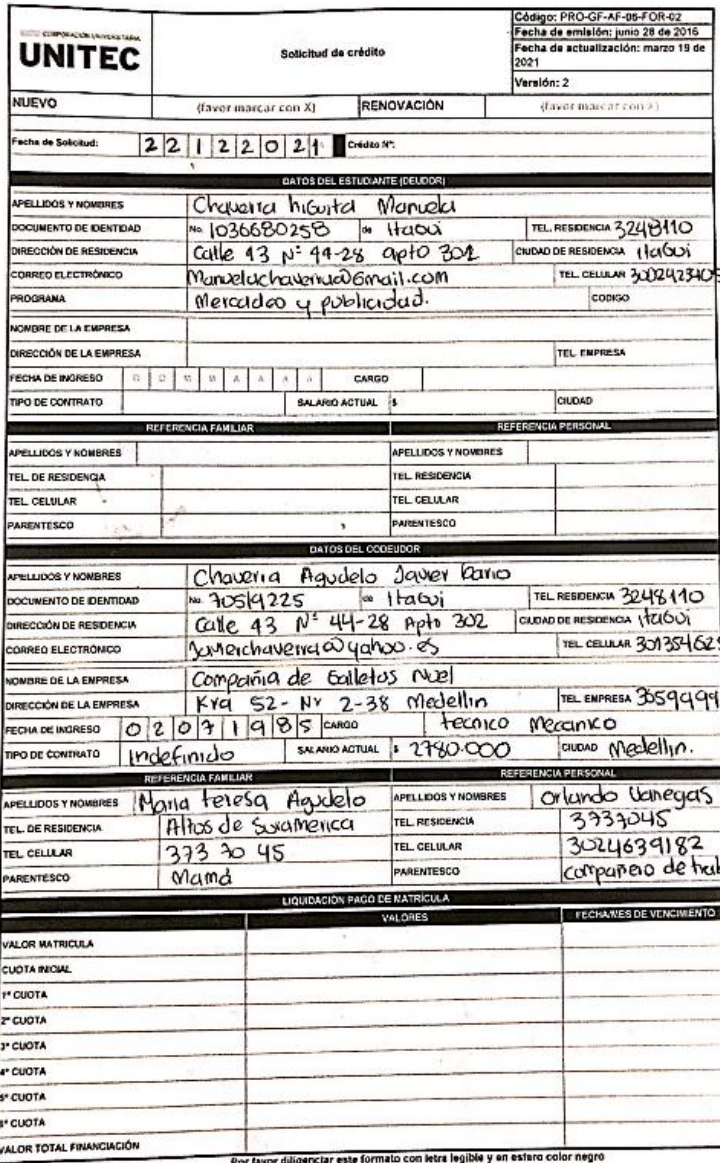 CORPORACIÓN UNIVERSITARIA
UNITEC
Solicitud de crédito
Código: PRO-GF-AF-05-FOR-02
Fecha de emisión: junio 28 de 2016
Fecha de actualización: marzo 19 de 2021
Versión: 2
NUEVO (favor marcar con X) RENOVACIÓN (favor marcar con X)
Fecha de Solicitud: 2 2 1 2 2 0 2 1 Crédito N°:
DATOS DEL ESTUDIANTE (DEUDOR)
APELLIDOS Y NOMBRES Chaverra hiGuita Manuela
DOCUMENTO DE IDENTIDAD No. 1036680258 de Itagui TEL. RESIDENCIA 3248110
DIRECCIÓN DE RESIDENCIA Calle 43 N° 44-28 apto 302 CIUDAD DE RESIDENCIA itaGui
CORREO ELECTRÓNICO Manuelachaverra@Gmail.com TEL. CELULAR 3002423405
PROGRAMA Mercadeo y publicidad. CODIGO
NOMBRE DE LA EMPRESA
DIRECCIÓN DE LA EMPRESA TEL. EMPRESA
FECHA DE INGRESO D D M M A A A A CARGO
TIPO DE CONTRATO SALARIO ACTUAL $ CIUDAD
REFERENCIA FAMILIAR REFERENCIA PERSONAL
APELLIDOS Y NOMBRES APELLIDOS Y NOMBRES
TEL. DE RESIDENCIA TEL. RESIDENCIA
TEL. CELULAR TEL. CELULAR
PARENTESCO PARENTESCO
DATOS DEL CODEUDOR
APELLIDOS Y NOMBRES Chaverra Agudelo Javier Dario
DOCUMENTO DE IDENTIDAD No. 70519225 de itaGui TEL. RESIDENCIA 3248110
DIRECCIÓN DE RESIDENCIA Calle 43 N° 44-28 Apto 302 CIUDAD DE RESIDENCIA itaGui
CORREO ELECTRÓNICO Javierchaverra@yahoo.es TEL. CELULAR 301354625
NOMBRE DE LA EMPRESA Compañia de Galletas Noel
DIRECCIÓN DE LA EMPRESA Kra 52- Nr 2-38 Medellin TEL. EMPRESA 3659999
FECHA DE INGRESO 0 2 0 7 1 9 8 5 CARGO tecnico Mecanico
TIPO DE CONTRATO Indefinido SALARIO ACTUAL $ 2780.000 CIUDAD Medellin.
REFERENCIA FAMILIAR REFERENCIA PERSONAL
APELLIDOS Y NOMBRES Maria teresa Agudelo APELLIDOS Y NOMBRES Orlando Vanegas
TEL. DE RESIDENCIA Altos de Suramerica TEL. RESIDENCIA 3737045
TEL. CELULAR 373 70 45 TEL. CELULAR 3024639182
PARENTESCO Mamá PARENTESCO compañero de trab
LIQUIDACIÓN PAGO DE MATRÍCULA
VALORES FECHA/MES DE VENCIMIENTO
VALOR MATRICULA
CUOTA INICIAL
1ª CUOTA
2ª CUOTA
3ª CUOTA
4ª CUOTA
5ª CUOTA
6ª CUOTA
VALOR TOTAL FINANCIACIÓN
Por favor diligenciar este formato con letra legible y en esfero color negro